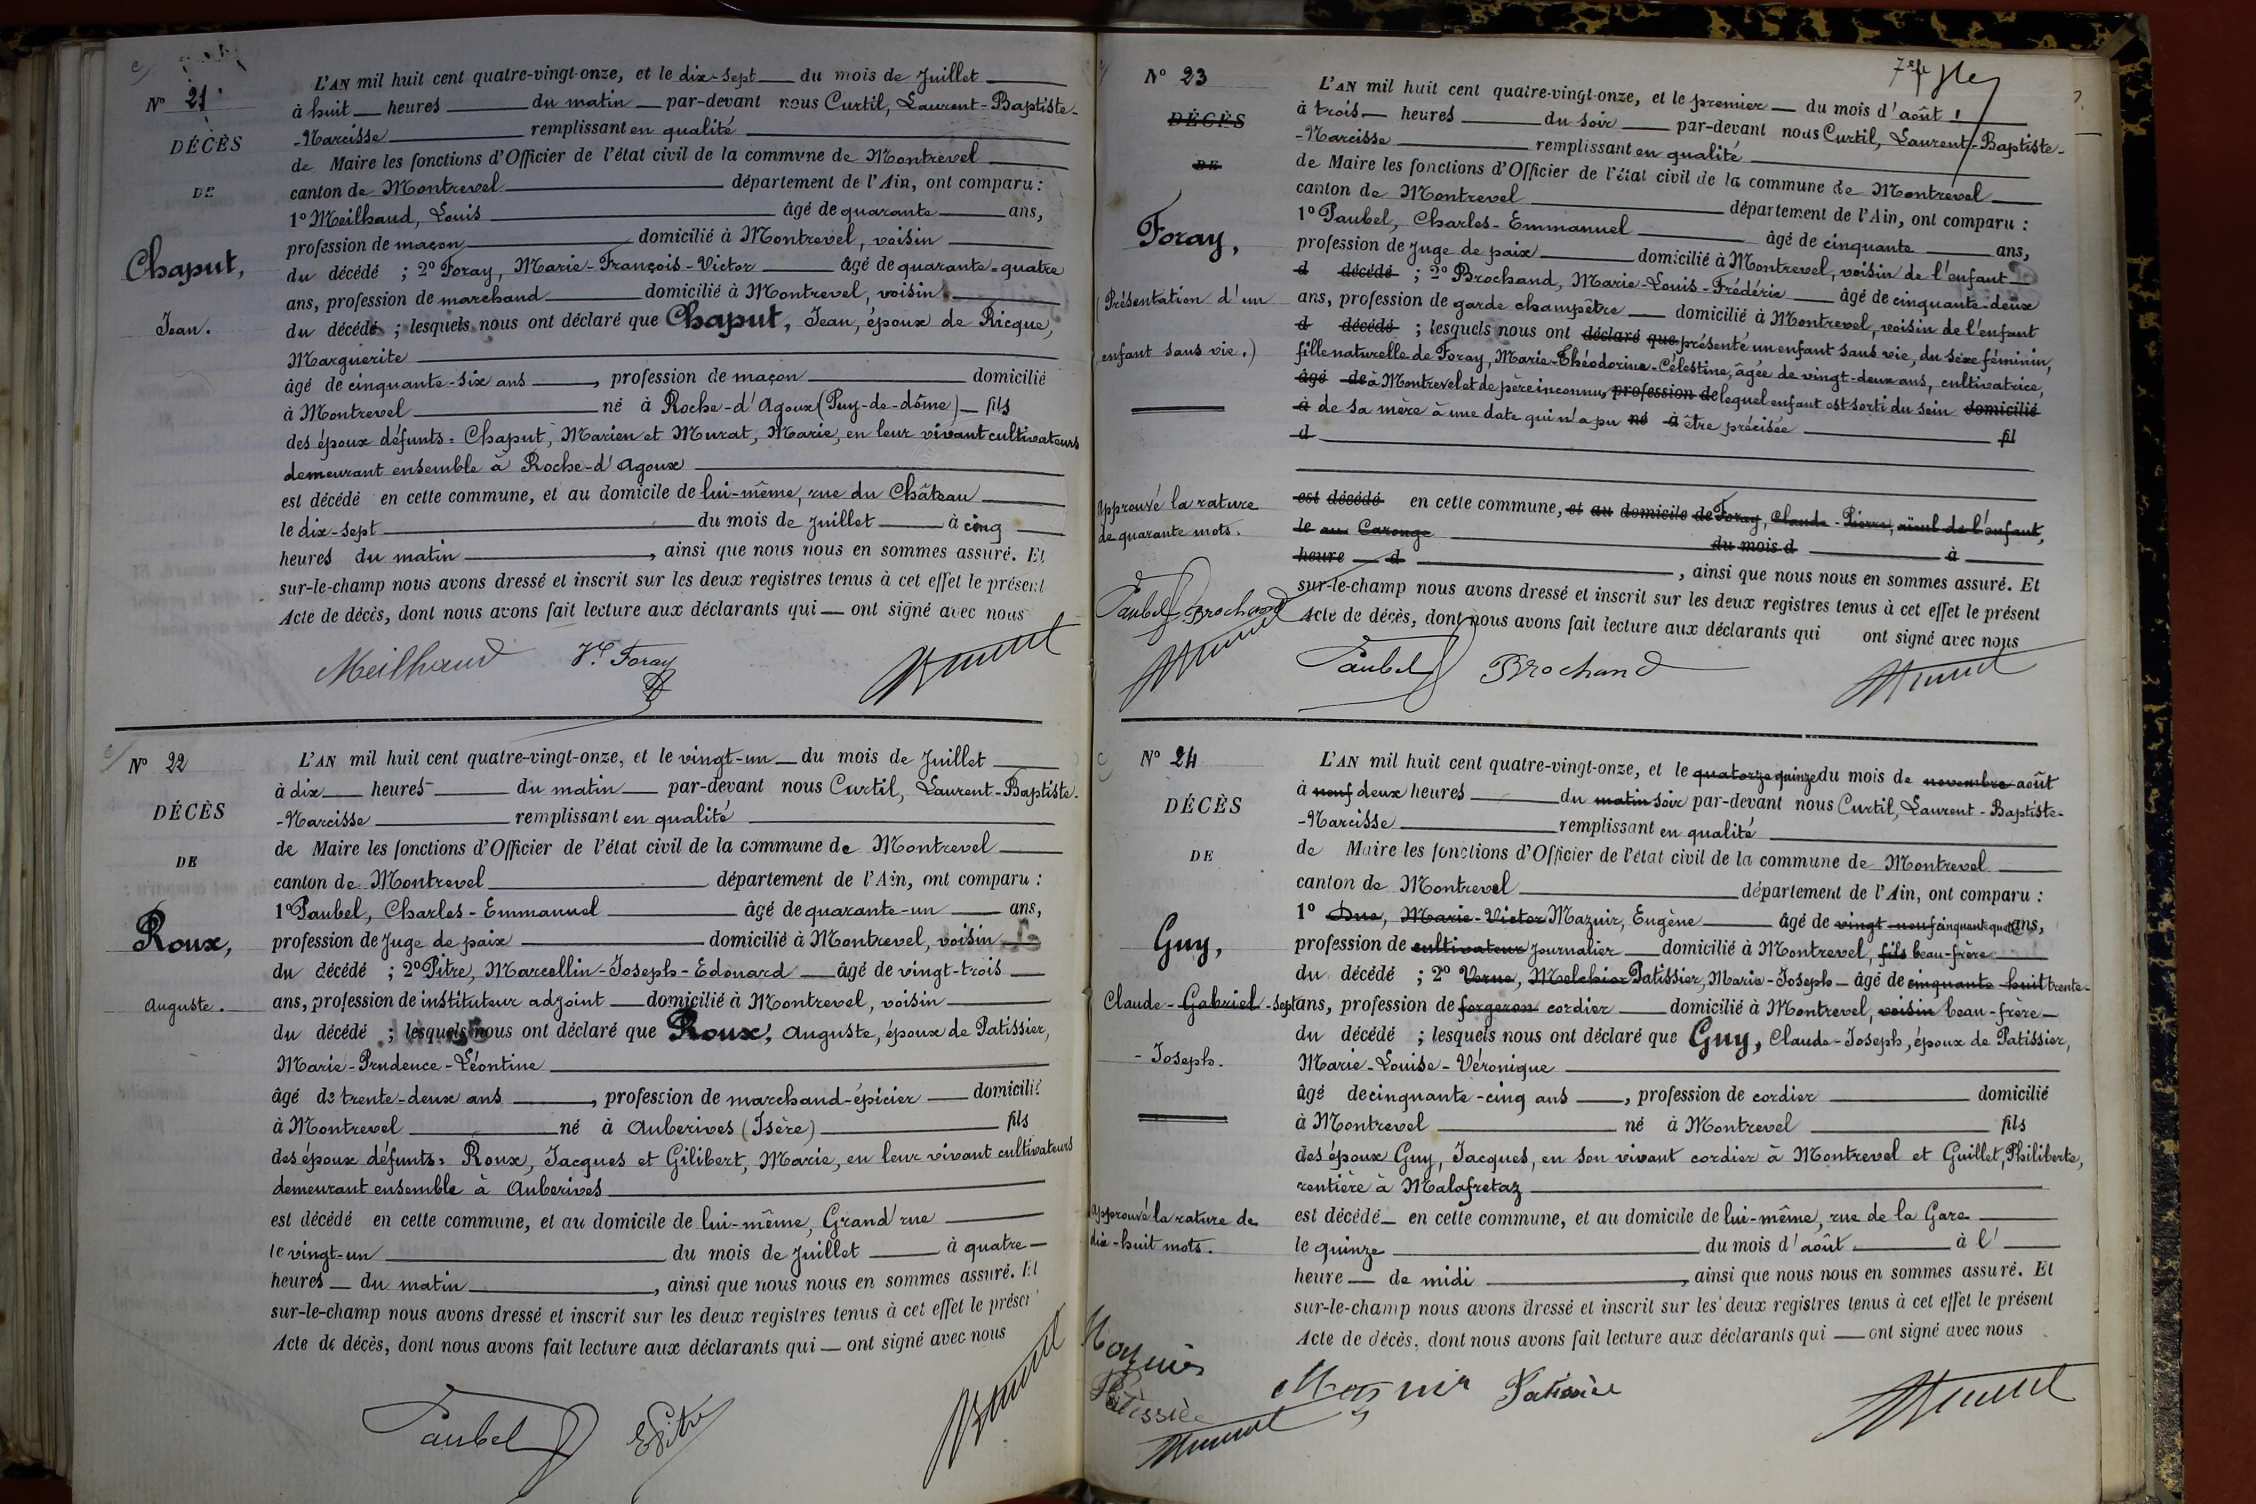 N° 21
DÉCÈS
DE
Chaput,
Jean.
L'AN mil huit cent quatre-vingt-onze, et le dix-sept du mois de Juillet
à huit heures du matin par-devant nous Curtil, Laurent-Baptiste-
-Narcisse remplissant en qualité
de Maire les fonctions d'Officier de l'état civil de la commune de Montrevel
canton de Montrevel département de l'Ain, ont comparu :
1° Meilhaud, Louis âgé de quarante ans,
profession de maçon domicilié à Montrevel, voisin
du décédé ; 2° Foray, Marie-François-Victor âgé de quarante-quatre
ans, profession de marchand domicilié à Montrevel, voisin
du décédé ; lesquels nous ont déclaré que Chaput, Jean, époux de Ricque,
Marguerite
âgé de cinquante-six ans, profession de maçon domicilié
à Montrevel né à Roche-d'Agoux (Puy-de-dôme) fils
des époux défunts : Chaput, Marien et Murat, Marie, en leur vivant cultivateurs
demeurant ensemble à Roche-d'Agoux
est décédé en cette commune, et au domicile de lui-même, rue du Château
le dix-sept du mois de Juillet à cinq
heures du matin, ainsi que nous nous en sommes assuré. Et
sur-le-champ nous avons dressé et inscrit sur les deux registres tenus à cet effet le présent
Acte de décès, dont nous avons fait lecture aux déclarants qui ont signé avec nous
Meilhaud Vor Foray
N° 22
DÉCÈS
DE
Roux,
Auguste.
L'AN mil huit cent quatre-vingt-onze, et le vingt-un du mois de Juillet
à dix heures du matin par-devant nous Curtil, Laurent-Baptiste-
-Narcisse remplissant en qualité
de Maire les fonctions d'Officier de l'état civil de la commune de Montrevel
canton de Montrevel département de l'Ain, ont comparu :
1° Paubel, Charles-Emmanuel âgé de quarante-un ans,
profession de Juge de paix domicilié à Montrevel, voisin
du décédé ; 2° Pitre, Marcellin-Joseph-Edouard âgé de vingt-trois
ans, profession de instituteur adjoint domicilié à Montrevel, voisin
du décédé ; lesquels nous ont déclaré que Roux, Auguste, époux de Patissier,
Marie-Prudence-Léontine
âgé de trente-deux ans, profession de marchand-épicier domicilié
à Montrevel né à Auberives (Isère) fils
des époux défunts : Roux, Jacques et Gilibert, Marie, en leur vivant cultivateurs
demeurant ensemble à Auberives
est décédé en cette commune, et au domicile de lui-même, Grand'rue
le vingt-un du mois de Juillet à quatre
heures du matin, ainsi que nous nous en sommes assuré. Et
sur-le-champ nous avons dressé et inscrit sur les deux registres tenus à cet effet le présent
Acte de décès, dont nous avons fait lecture aux déclarants qui ont signé avec nous
Paubel EPitre
N° 23
DÉCÈS
DE
Foray,
(Présentation d'un
enfant sans vie.)
Approuvé la rature
de quarante mots.
Paubel Brochand
L'AN mil huit cent quatre-vingt-onze, et le premier du mois d'août
à trois heures du soir par-devant nous Curtil, Laurent-Baptiste-
-Narcisse remplissant en qualité
de Maire les fonctions d'Officier de l'état civil de la commune de Montrevel
canton de Montrevel département de l'Ain, ont comparu :
1° Paubel, Charles-Emmanuel âgé de cinquante ans,
profession de Juge de paix domicilié à Montrevel, voisin de l'enfant
d décédé ; 2° Brochand, Marie-Louis-Frédéric âgé de cinquante-deux
ans, profession de garde champêtre domicilié à Montrevel, voisin de l'enfant
d décédé ; lesquels nous ont déclaré que présenté un enfant sans vie, du sexe féminin,
fille naturelle de Foray, Marie-Théodorine-Célestine, âgée de vingt-deux ans, cultivatrice,
âgé de à Montrevel et de père inconnu, profession de lequel enfant est sorti du sein domicilié
à de sa mère à une date qui n'a pu né à être précisée
d fil
est décédé en cette commune, et au domicile de Foray, Claude-Pierre, aïeul de l'enfant,
le au Carouge du mois d à
heure d, ainsi que nous nous en sommes assuré. Et
sur-le-champ nous avons dressé et inscrit sur les deux registres tenus à cet effet le présent
Acte de décès, dont nous avons fait lecture aux déclarants qui ont signé avec nous
Paubel Brochand
N° 24
DÉCÈS
DE
Guy,
Claude-Gabriel-
-Joseph.
Approuvé la rature de
dix-huit mots.
Mazuir
Patissier
L'AN mil huit cent quatre-vingt-onze, et le quatorze quinze du mois de novembre août
à neuf deux heures du matin soir par-devant nous Curtil, Laurent-Baptiste-
-Narcisse remplissant en qualité
de Maire les fonctions d'Officier de l'état civil de la commune de Montrevel
canton de Montrevel département de l'Ain, ont comparu :
1° Duc, Marie-Victor Mazuir, Eugène âgé de vingt-neuf cinquante-quatre ans,
profession de cultivateur journalier domicilié à Montrevel, fils beau-frère
du décédé ; 2° Verne, Melchior Patissier, Marie-Joseph âgé de cinquante-huit trente-
sept ans, profession de forgeron cordier domicilié à Montrevel, voisin beau-frère
du décédé ; lesquels nous ont déclaré que Guy, Claude-Joseph, époux de Patissier,
Marie-Louise-Véronique
âgé de cinquante-cinq ans, profession de cordier domicilié
à Montrevel né à Montrevel fils
des époux Guy, Jacques, en son vivant cordier à Montrevel et Guillet, Philiberte,
rentière à Malafretaz
est décédé en cette commune, et au domicile de lui-même, rue de la Gare
le quinze du mois d'août à l'
heure de midi, ainsi que nous nous en sommes assuré. Et
sur-le-champ nous avons dressé et inscrit sur les deux registres tenus à cet effet le présent
Acte de décès, dont nous avons fait lecture aux déclarants qui ont signé avec nous
Mazuir Patissier